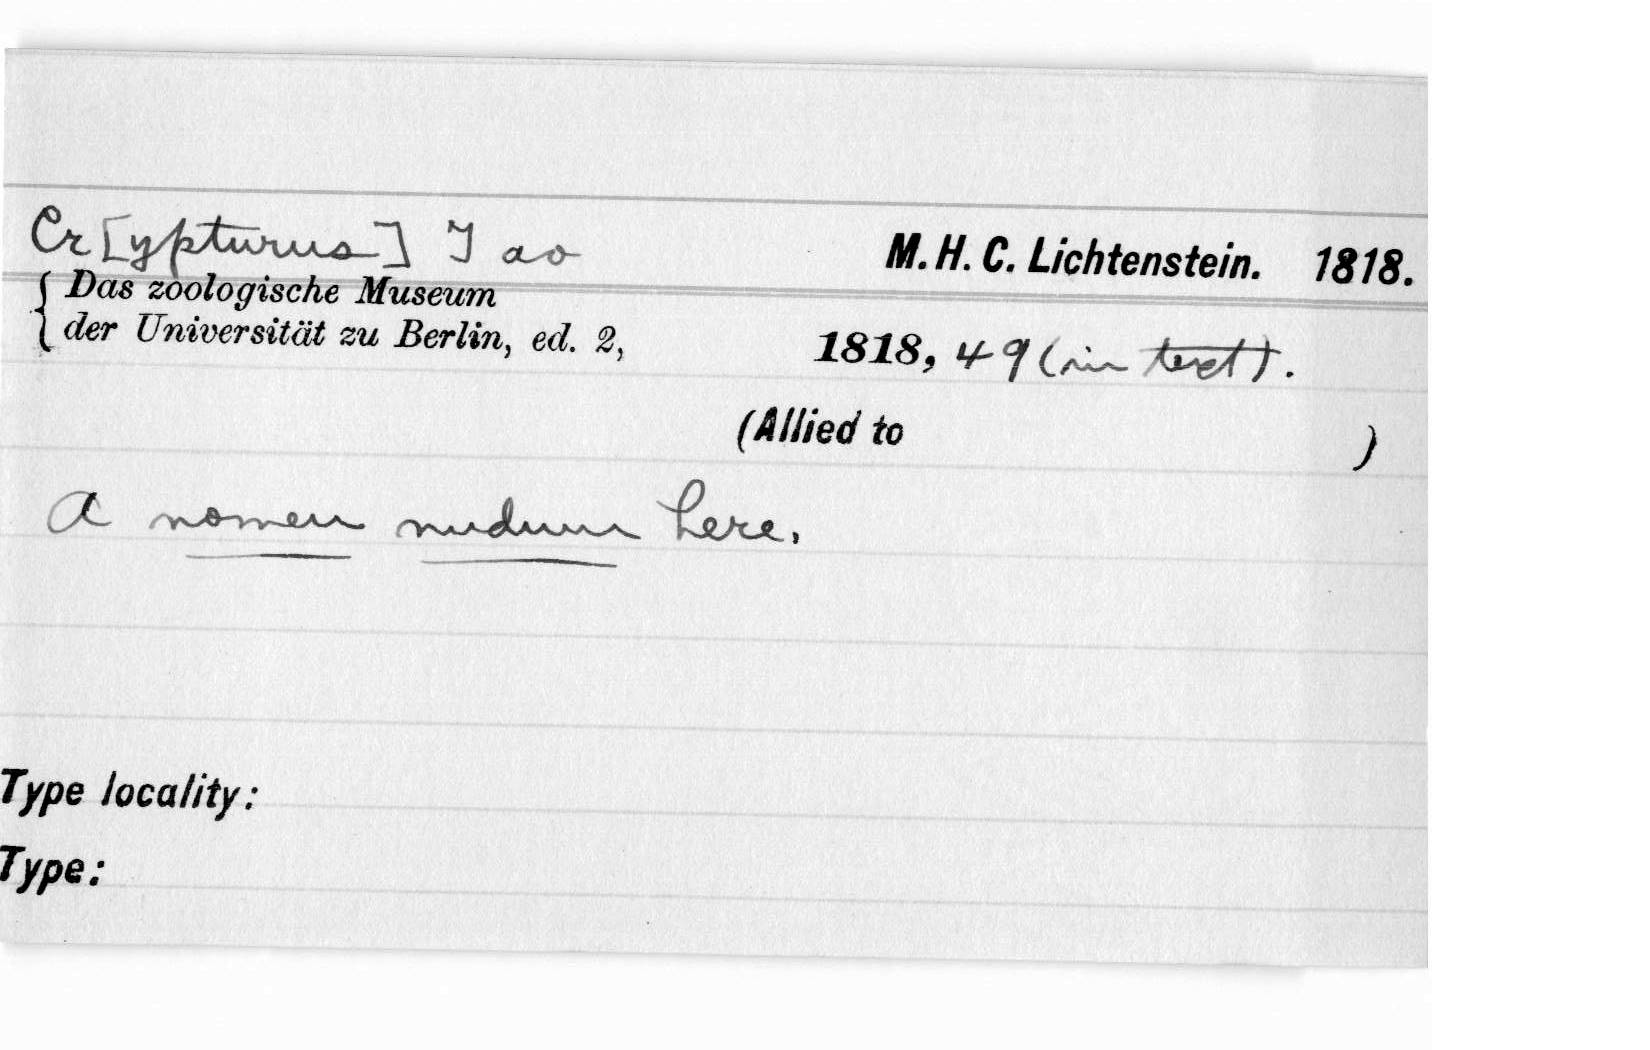 Cr[ypturus] Tao M. H. C. Lichtenstein. 1818.
Das zoologische Museum
der Universität zu Berlin, ed. 2, 1818, 49 (in text).
(Allied to )
A nomen nudum here.
Type locality:
Type: